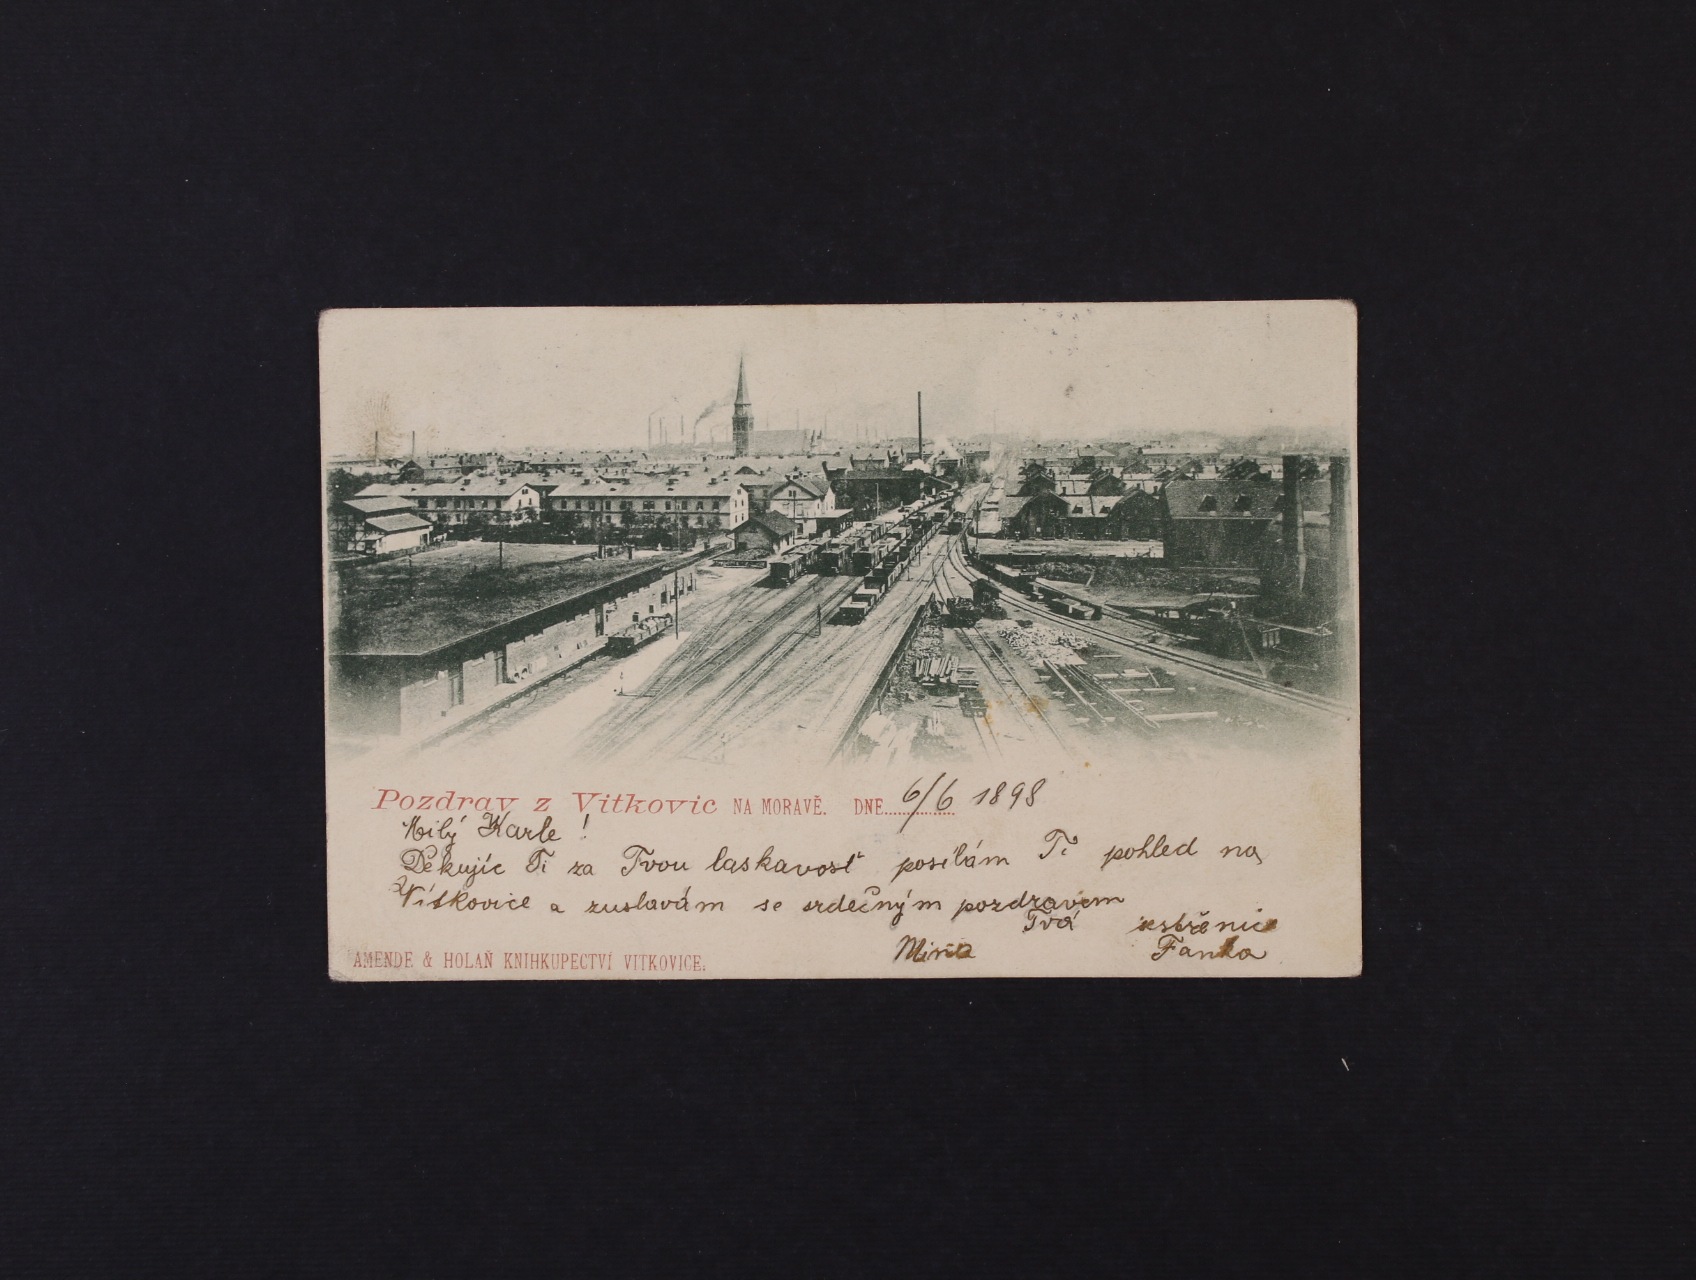 Pozdrav z Vitkovic NA MORAVĚ. DNE 6/6 1898
Milý Karle!
Děkujíc Ti za Tvou laskavost posílám Ti pohled na
Vítkovice a zustavám se srdečným pozdravem
Tvá sestřenice
Mina Fanka
AMENDE & HOLAŇ KNIHKUPECTVÍ VITKOVICE.